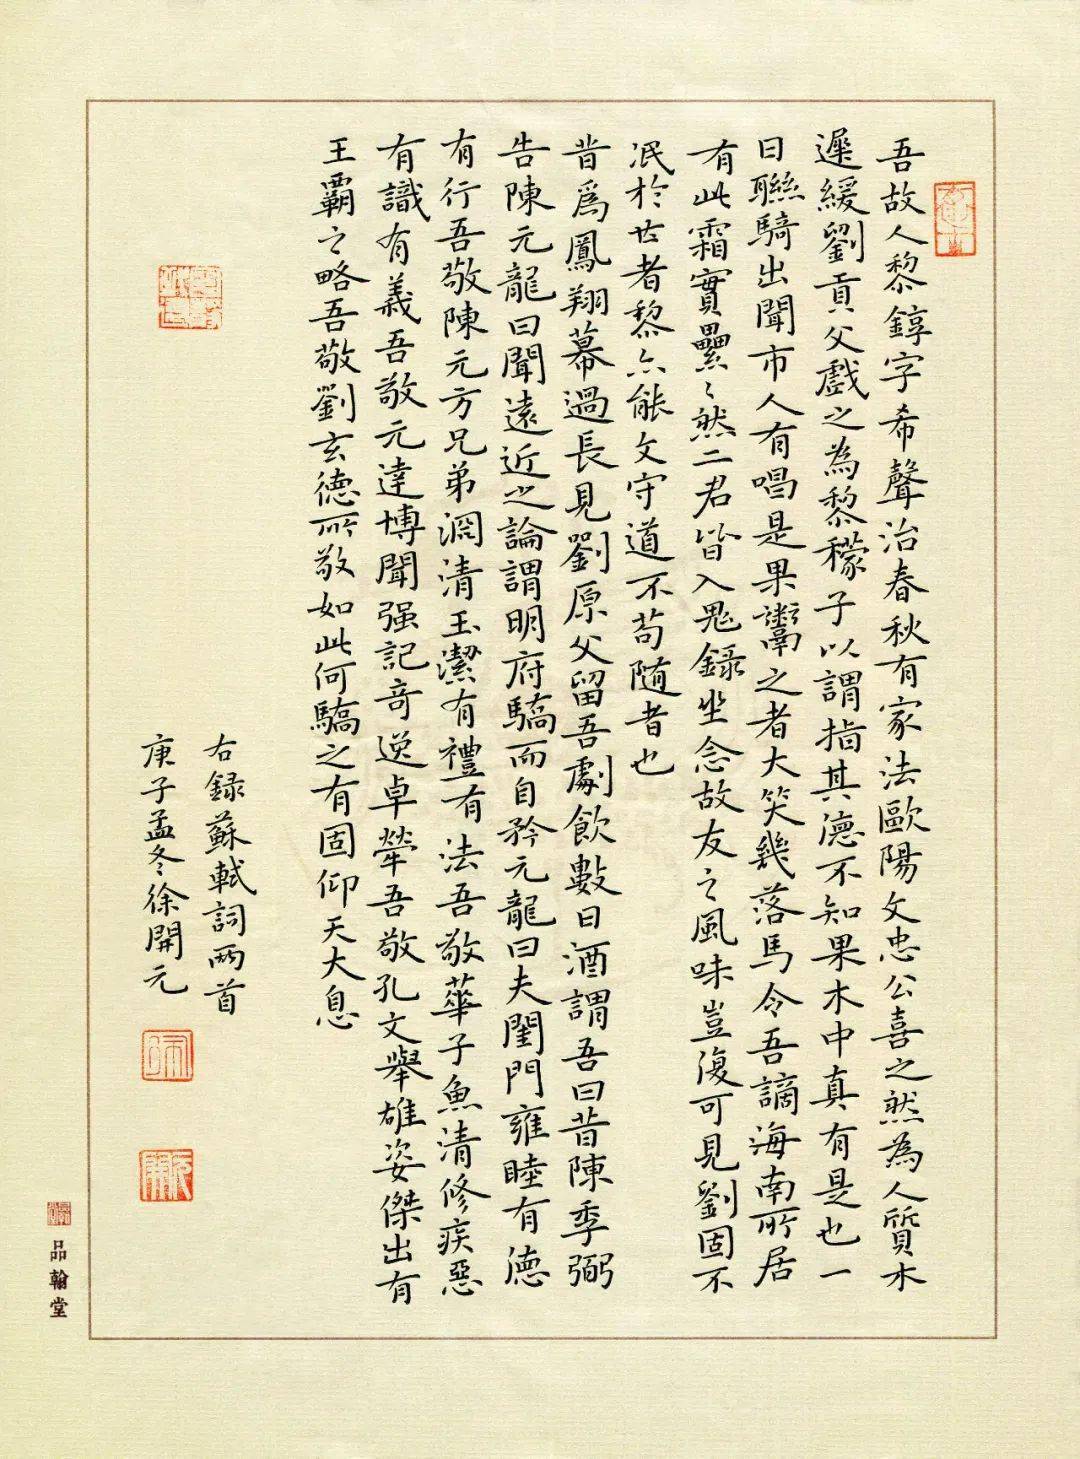 吾故人黎錞字希聲治春秋有家法歐陽文忠公喜之然為人質木
遲緩劉貢父戲之為黎檬子以謂指其德不知果木中真有是也一
日聯騎出聞市人有唱是果鬻之者大笑幾落馬今吾謫海南所居
有此霜實纍〻然二君皆入鬼錄坐念故友之風味豈復可見劉固不
泯於世者黎亦能文守道不苟随者也
昔爲鳳翔幕過長見劉原父留吾劇飲數日酒謂吾曰昔陳季弼
告陳元龍曰聞遠近之論謂明府驕而自矜元龍曰夫閨門雍睦有德
有行吾敬陳元方兄弟淵清玉潔有禮有法吾敬華子魚清修疾惡
有識有義吾敬元達博聞强記奇逸卓犖吾敬孔文舉雄姿傑出有
王霸之略吾敬劉玄德所敬如此何驕之有固仰天大息
右録蘇軾詞兩首
庚子孟冬徐開元
品翰堂